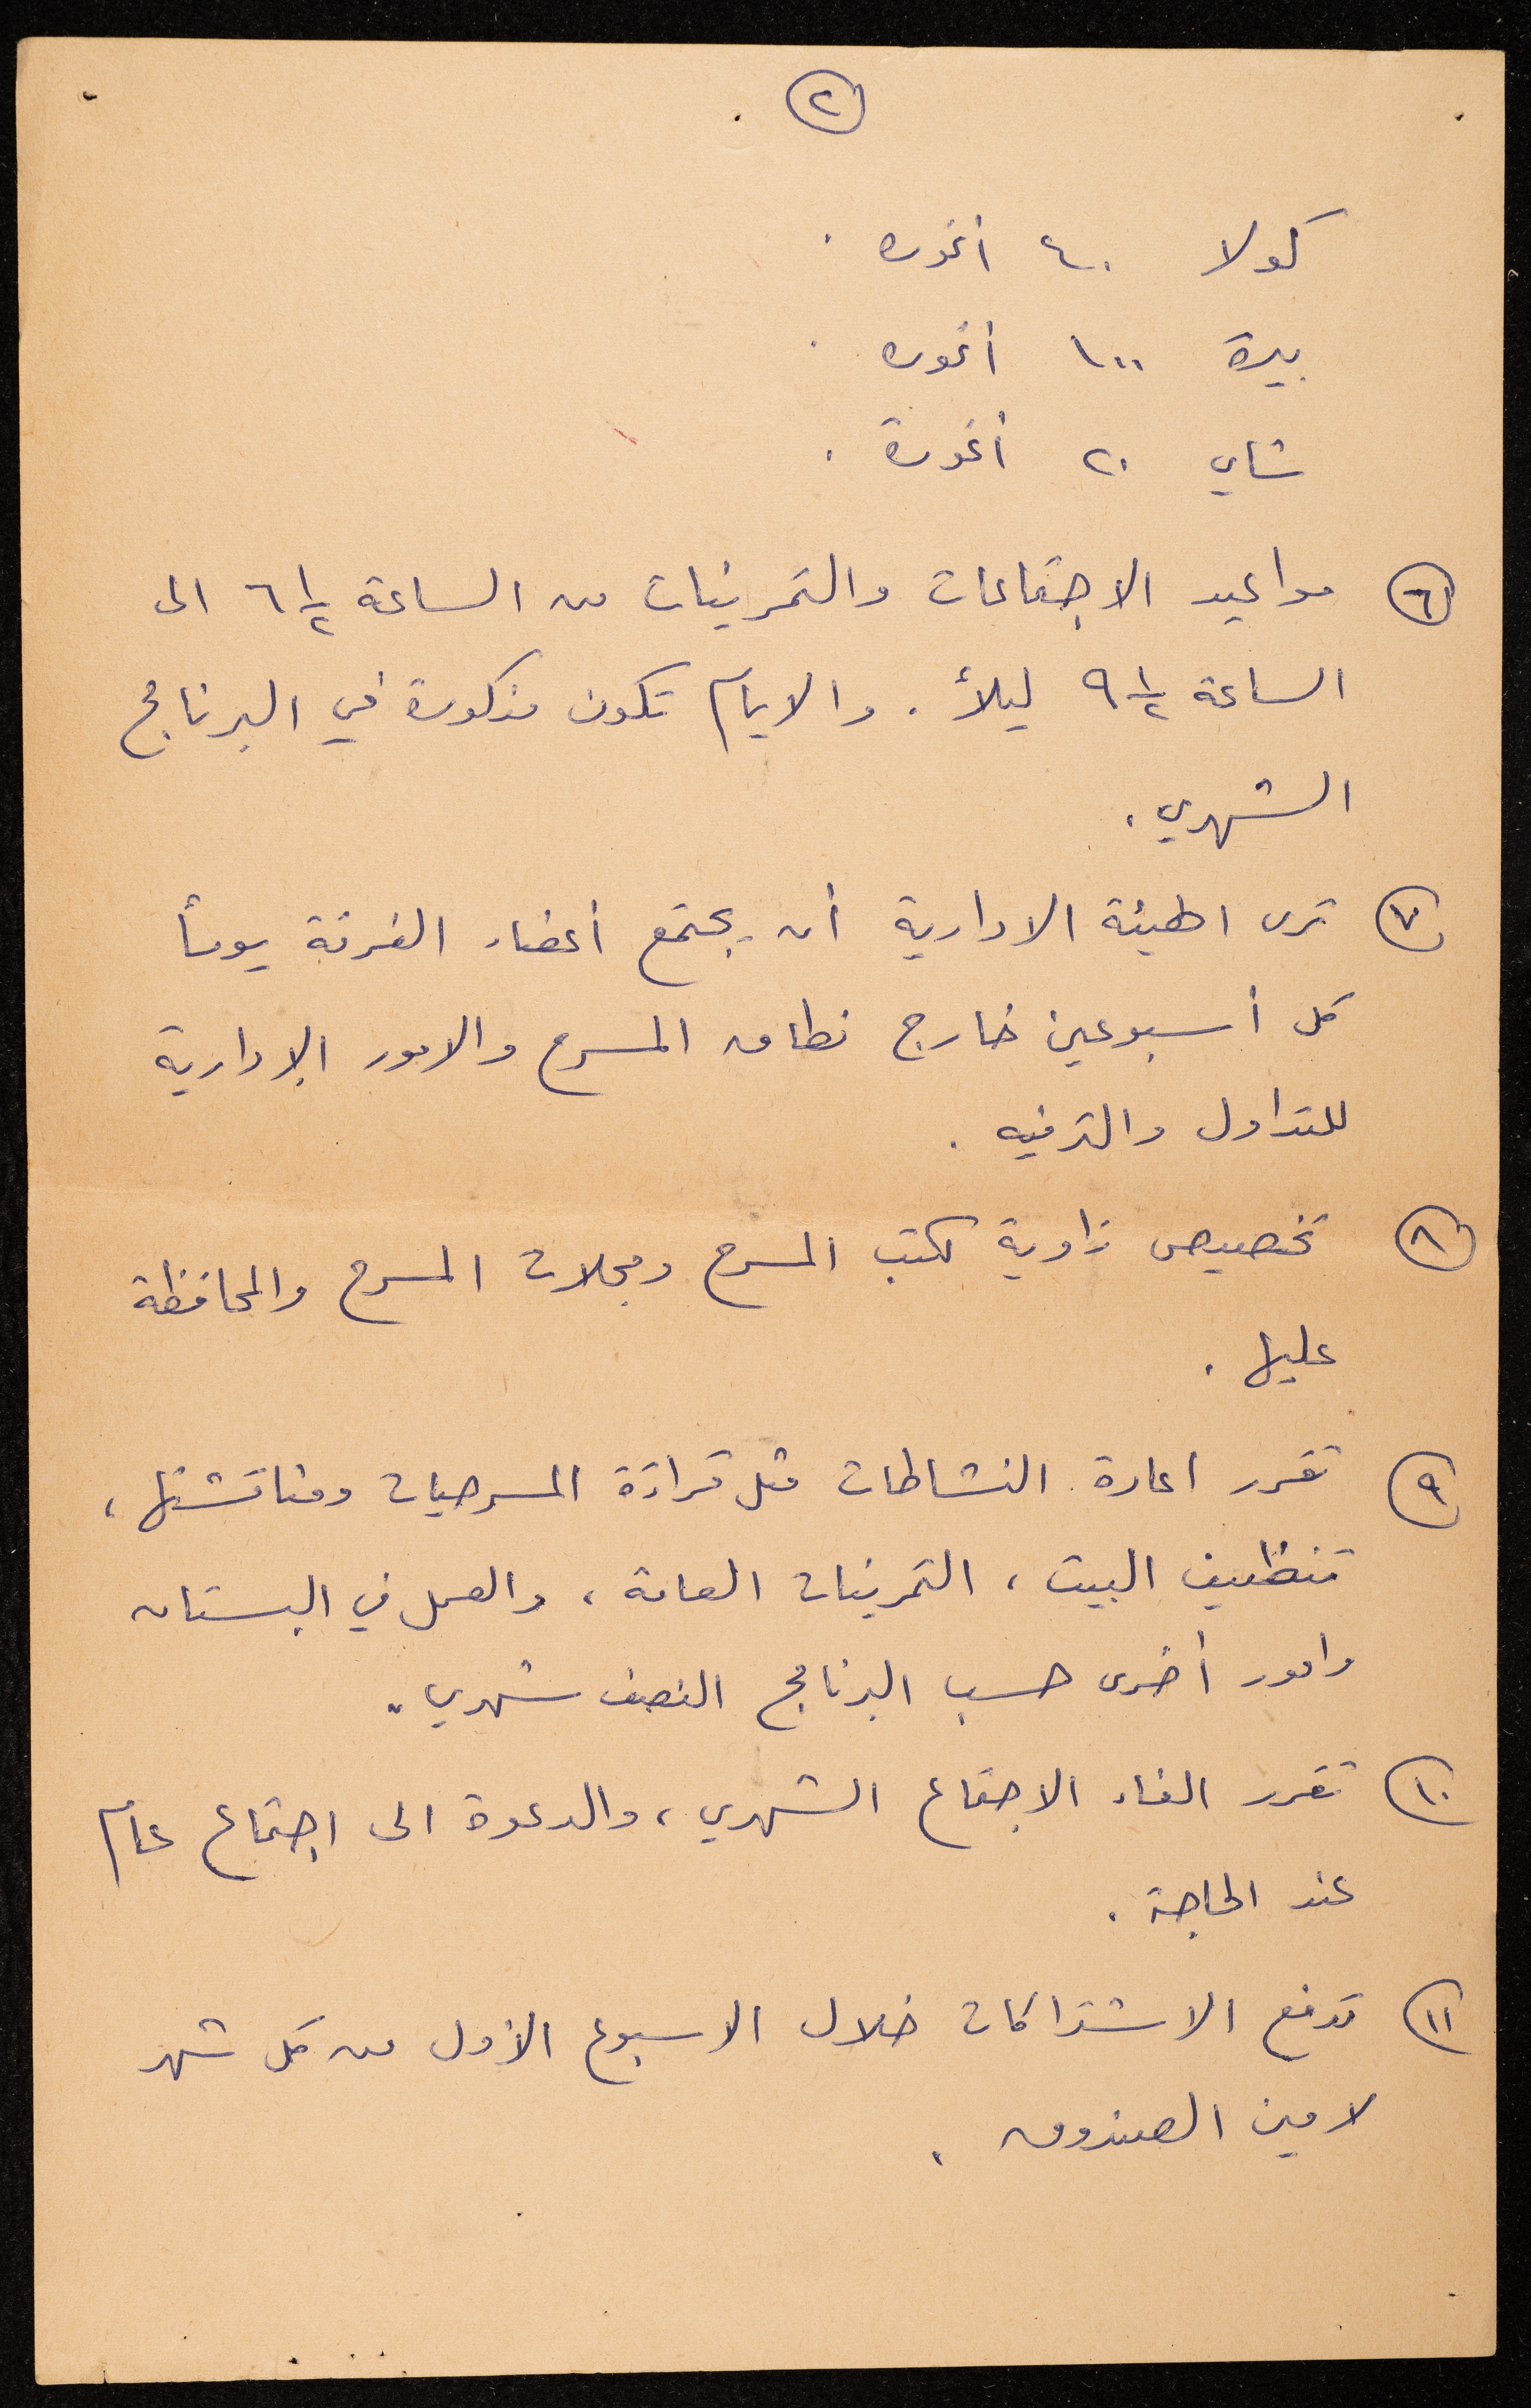 ٢
كولا ٤٠ أغوره .
بيرة ١٠٠ أغوره .
شاي ٢٠ أغورة .
٦ مواعيد الاجتماعات والتمرينات من الساعة ٦ ١/٢ الى
الساعة ٩ ١/٢ ليلاً . والايام تكون مذكورة في البرنامج
الشهري .
٧ ترى الهيئة الادارية أن يجتمع أعضاء الفرقة يوماً
كل أسبوعين خارج نطاق المسرح والامور الإدارية
للتداول والترفيه .
٨ تخصيص زاوية لكتب المسرح ومجلات المسرح والمحافظة
عليها .
٩ تقرر اعادة النشاطات مثل قراءة المسرحيات ومناقشتها ،
تنظيف البيت ، التمرينات العامة ، والعمل في البستان
وامور أخرى حسب البرنامج النصف شهري .
١٠ تقرر الغاء الاجتماع الشهري ، والدعوة الى اجتماع عام
عند الحاجة .
١١ تدفع الاشتراكات خلال الاسبوع الأول من كل شهر
لامين الصندوق .